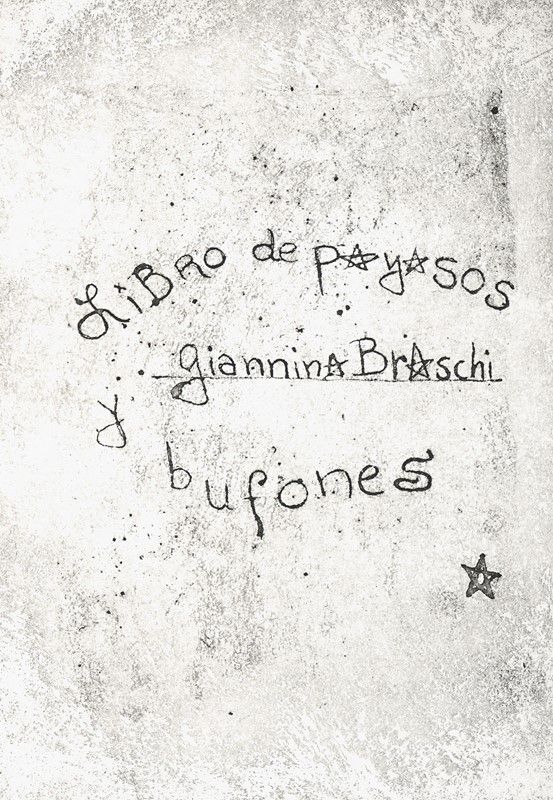 LiBRo de payasos
Giannina Braschi
y
bufones